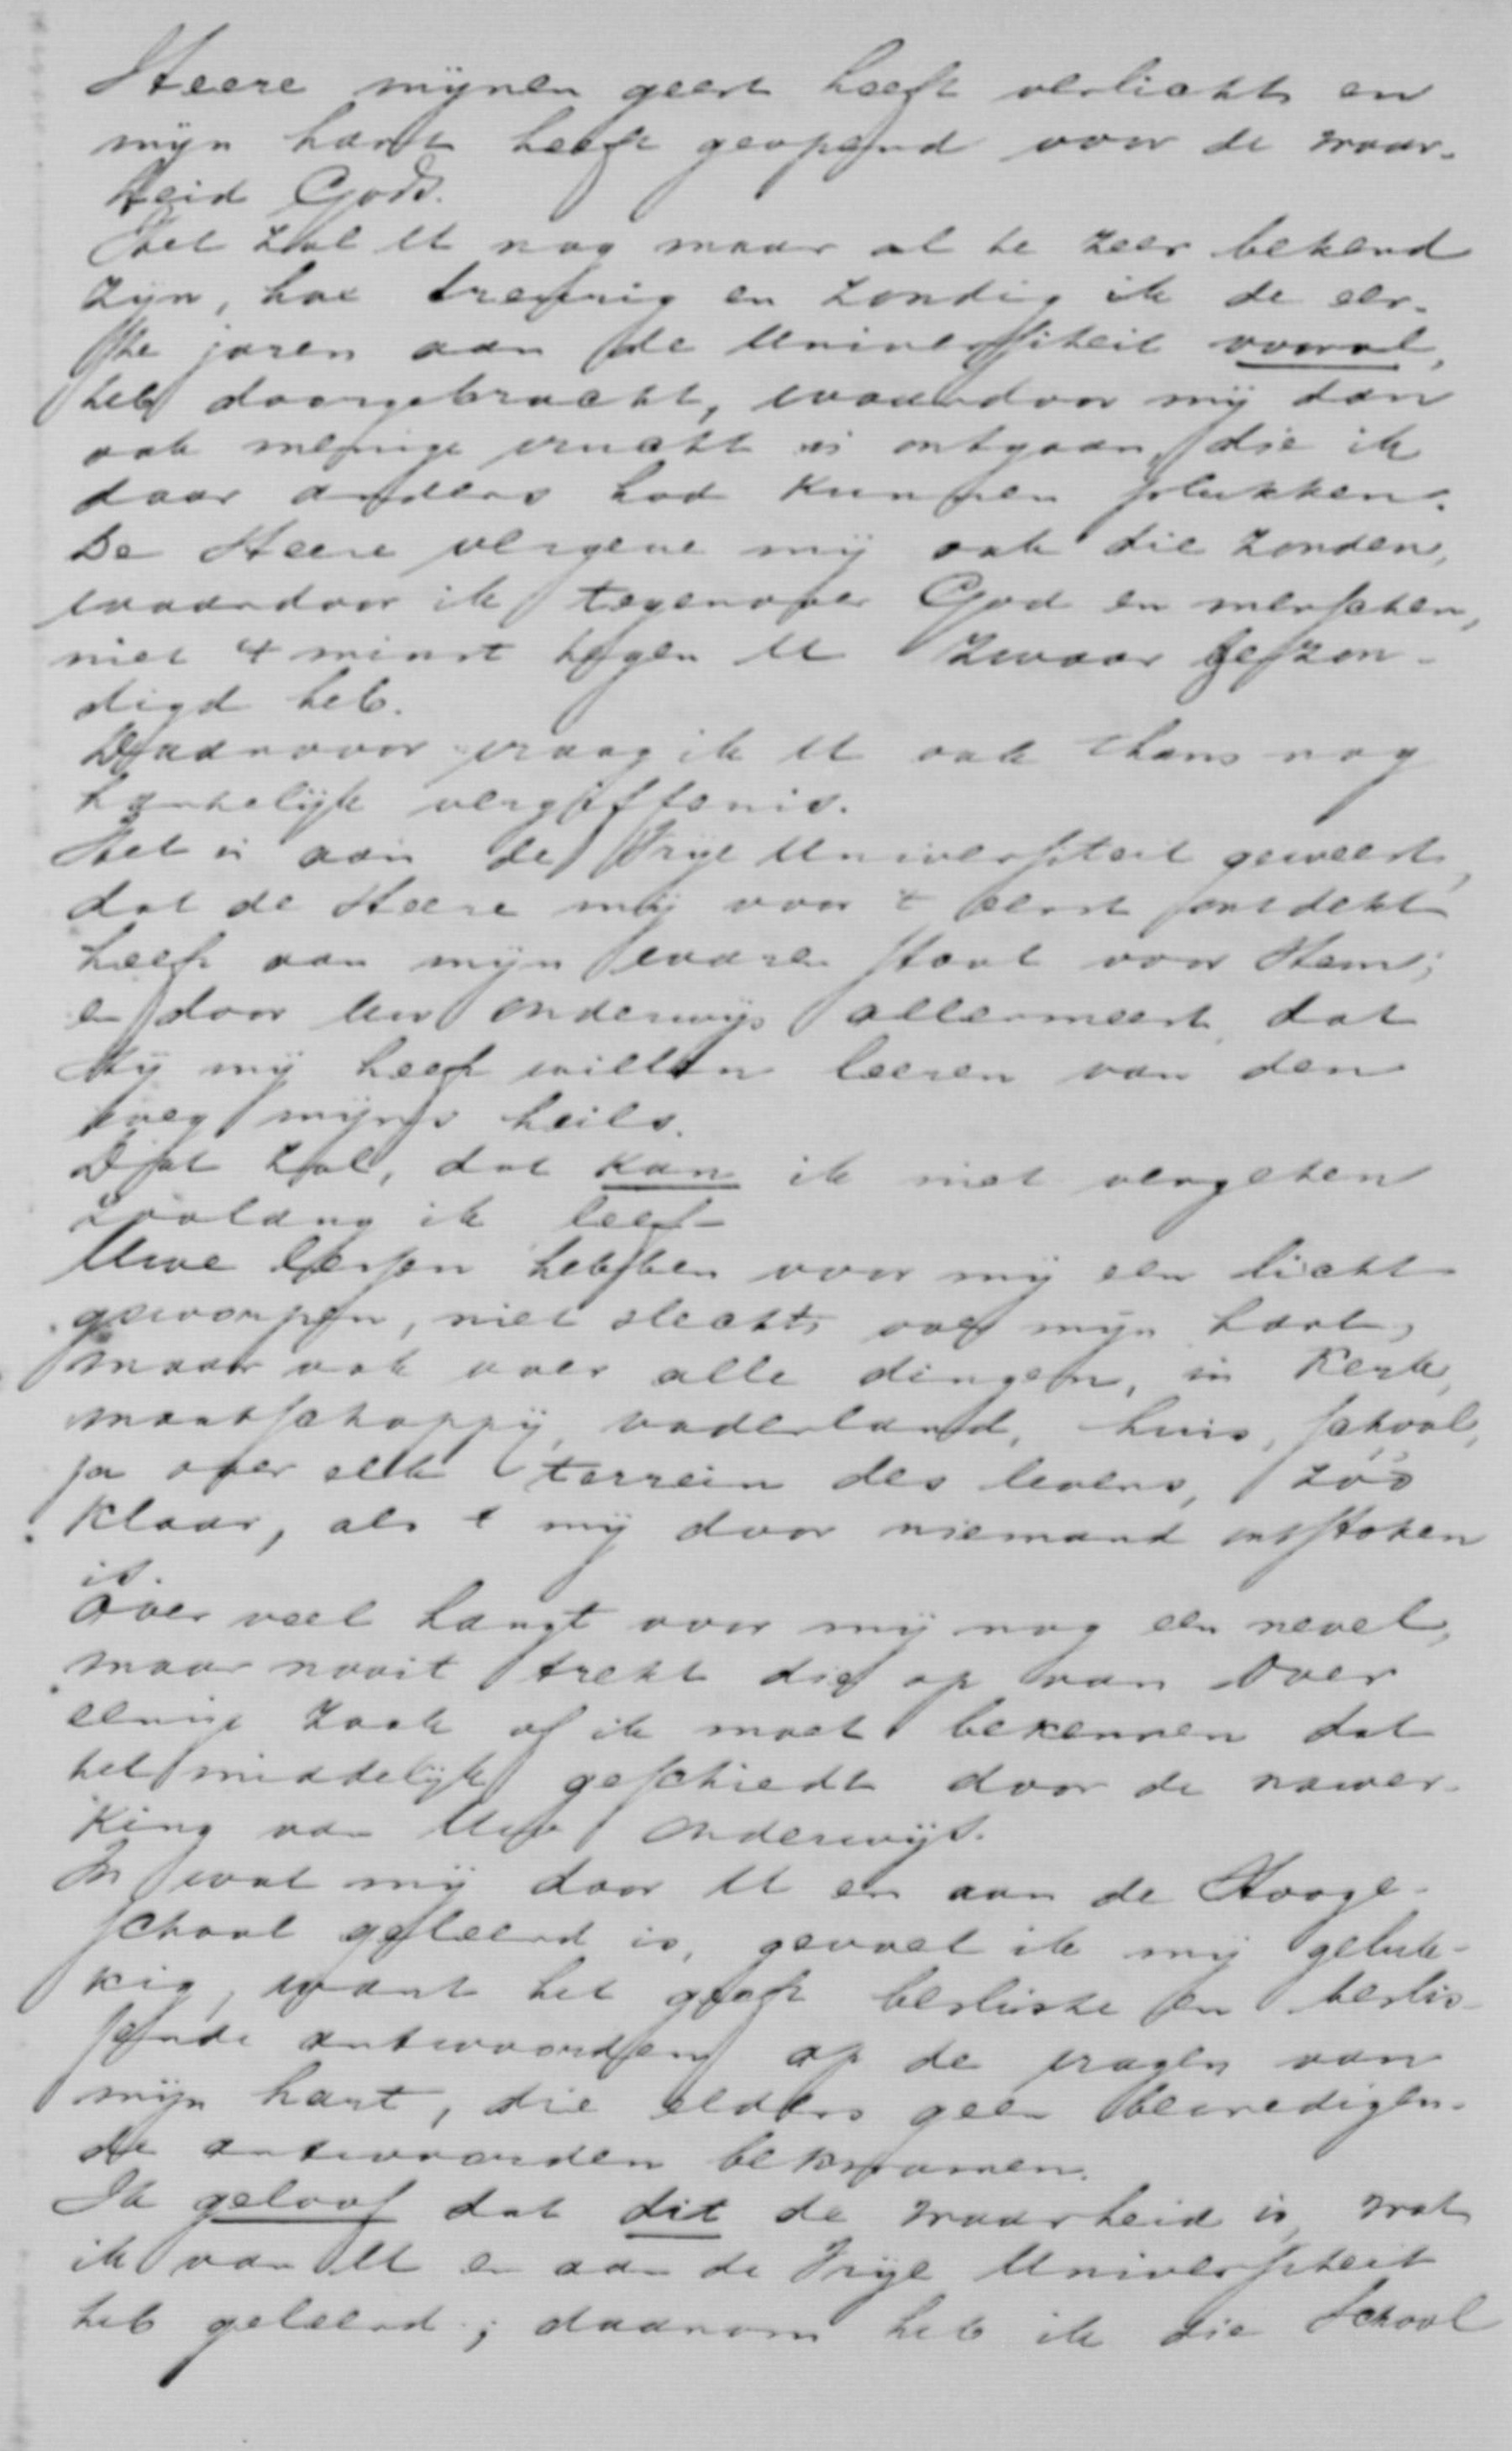 Heere mijnen geest heeft verlicht en
mijn hart heeft geopend voor de waar-
heid Gods.
Het zal U nog maar al te zeer bekend
zijn, hoe treurig en zondig ik de eer-
ste jaren aan de Universiteit vooral,
heb doorgebracht, waardoor mij dan
ook menige vrucht is ontgaan, die ik
daar anders had kunnen plukken.
De Heere vergeve mij ook die zonden,
waardoor ik tegenover God en menschen,
niet 't minst tegen U zwaar gezon-
digd heb.
Daarvoor vraag ik U ook thans nog
hartelijk vergiffenis.
Het is aan de Vrije Universiteit geweest,
dat de Heere mij voor 't eerst ontdekt
heeft aan mijn waren staat voor Hem;
en door Uw onderwijs allermeest, dat
Hij mij heeft willen leeren van den
weg mijns heils.
Dat zal, dat kan ik niet vergeten
zoolang ik leef.
Uwe lessen hebben voor mij een licht
geworpen, niet slechts over mijn hart,
maar ook over alle dingen, in Kerk,
maatschappij, vaderland, huis, school,
ja over elk terrein des levens, zóó
klaar, als 't mij door niemand ontstoken
is.
Over veel hangt voor mij nog een nevel,
maar nooit trekt die op van over
eenige zaak of ik moet bekennen dat
het middelijk geschiedt door de nawer-
king van Uw onderwijs.
In wat mij door U en aan de Hooge-
school geleerd is, gevoel ik mij geluk-
kig, want het geeft besliste en beslis-
sende antwoorden op de vragen van
mijn hart, die elders geen bevredigen-
de antwoorden bekwamen.
Ik geloof dat dit de waarheid is, wat
ik van U en aan de Vrije Universiteit
heb geleerd; daarom heb ik die School